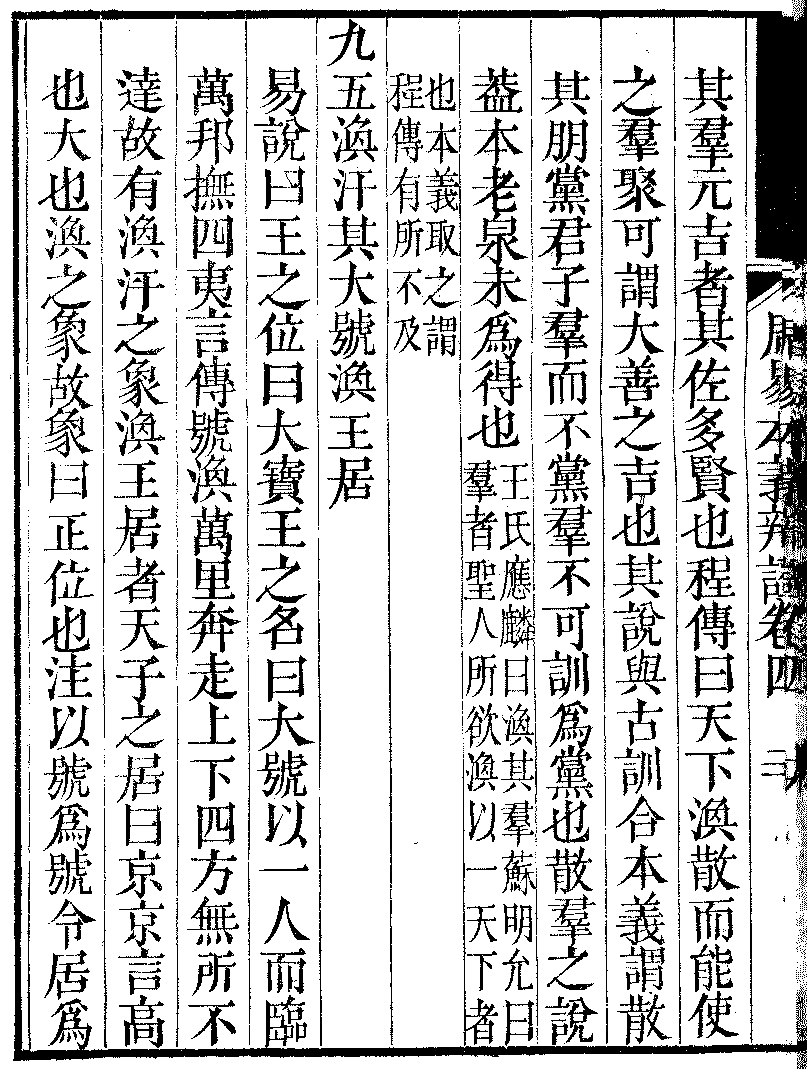 其羣元吉者其佐多賢也程傳曰天下渙散而能使
之羣聚可謂大善之吉也其說與古訓合本義謂散
其朋黨君子羣而不黨羣不可訓爲黨也散羣之說
葢本老泉未爲得也王氏應麟曰渙其羣蘇明允曰
羣者聖人所欲渙以一天下者
也本義取之謂
程傳有所不及
九五渙汗其大號渙王居
易說曰王之位曰大寶王之名曰大號以一人而臨
萬邦撫四夷言傳號渙萬里奔走上下四方無所不
達故有渙汗之象渙王居者天子之居曰京京言高
也大也渙之象故象曰正位也注以號爲號令居爲
周易本義辨證卷四